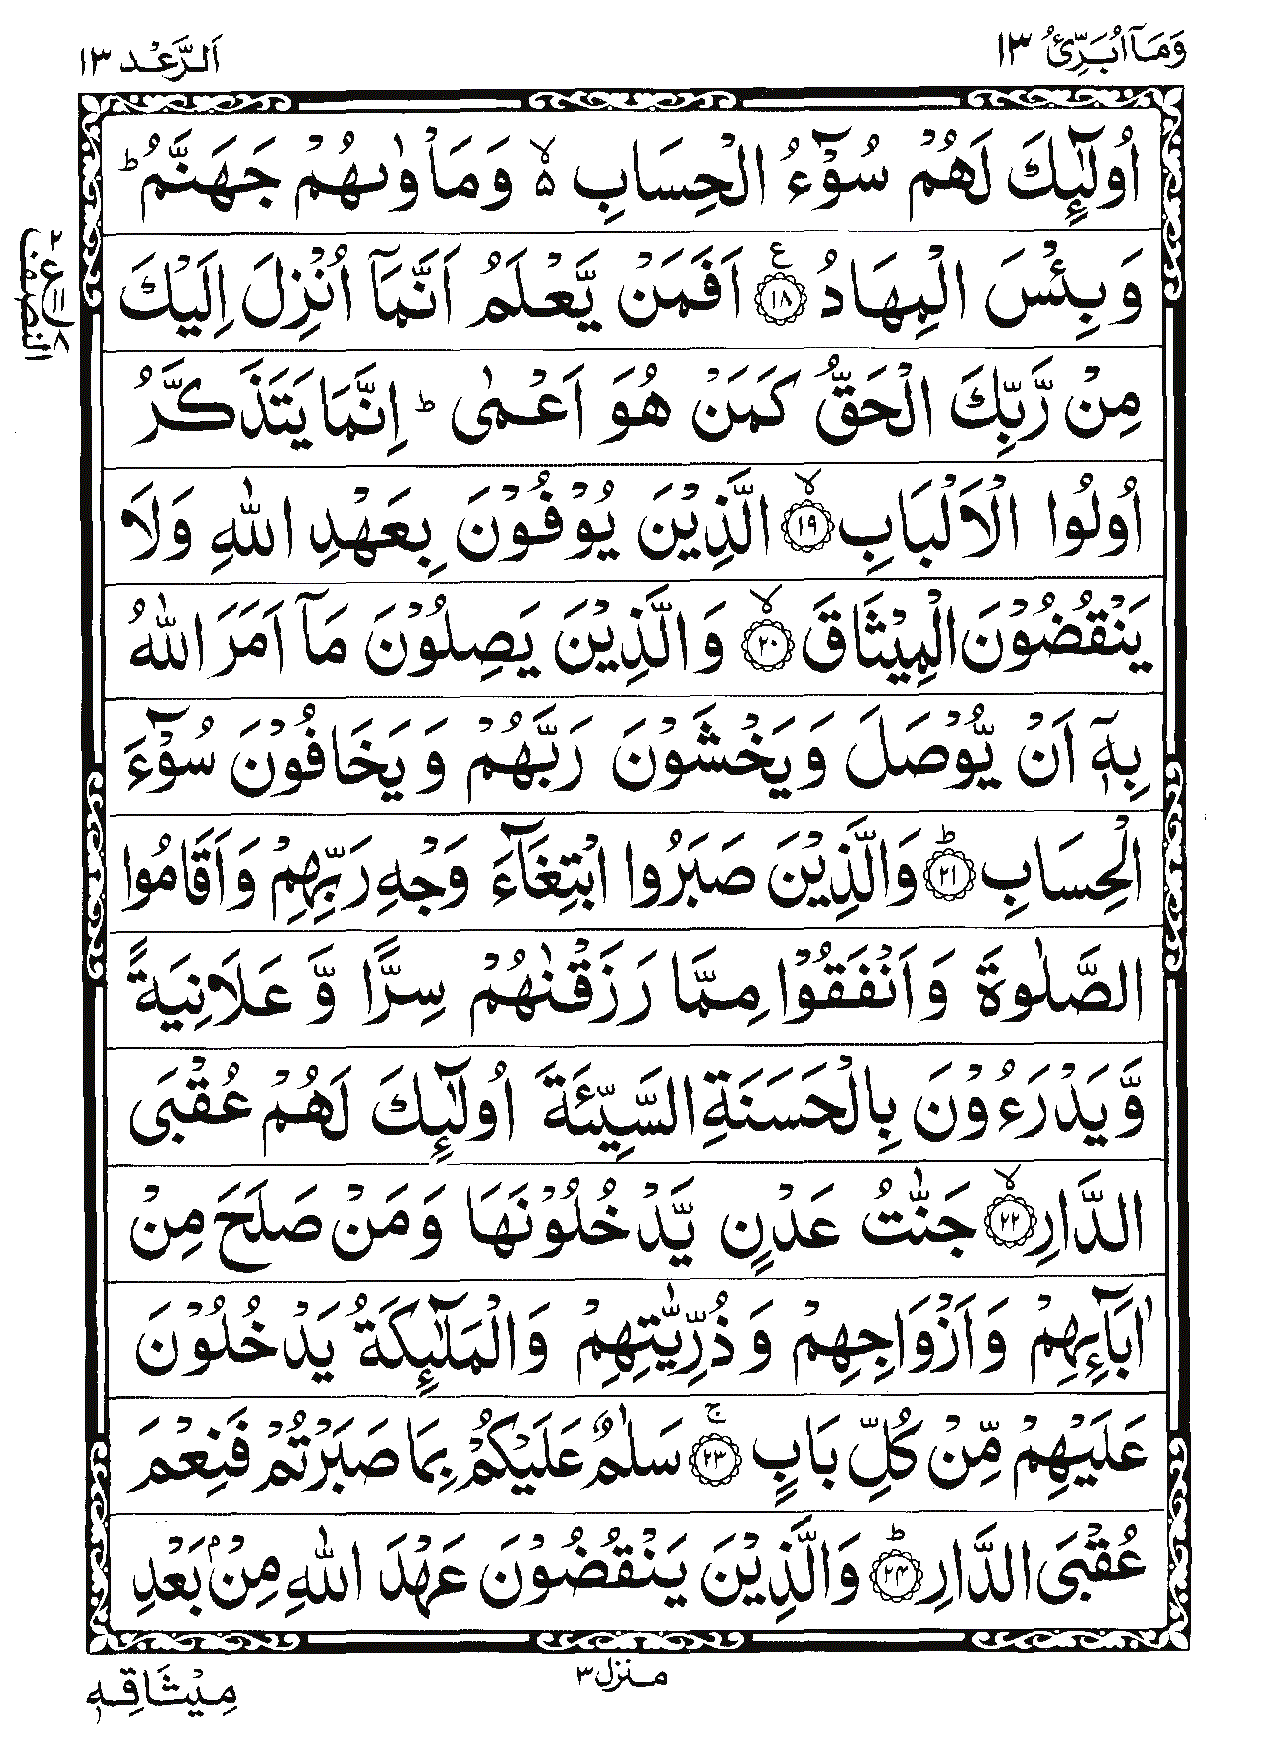 وَمَآ اُبَرِّئُ ١٣
اَلرَّعْد ١٣
اُولٰٓئِكَ لَهُمْ سُوْٓءُ الْحِسَابِ ۙ۵ وَمَاْوٰىهُمْ جَهَنَّمُ ؕ
وَبِئْسَ الْمِهَادُ ﴿١٨﴾ ع اَفَمَنْ يَّعْلَمُ اَنَّمَآ اُنْزِلَ اِلَيْكَ
النصف
مِنْ رَّبِّكَ الْحَقُّ كَمَنْ هُوَ اَعْمٰى ؕ اِنَّمَا يَتَذَكَّرُ
اُولُوا الْاَلْبَابِ ﴿١٩﴾ ۙ الَّذِيْنَ يُوْفُوْنَ بِعَهْدِ اللّٰهِ وَلَا
يَنْقُضُوْنَ الْمِيْثَاقَ ﴿٢٠﴾ ۙ وَالَّذِيْنَ يَصِلُوْنَ مَآ اَمَرَ اللّٰهُ
بِهٖٓ اَنْ يُّوْصَلَ وَيَخْشَوْنَ رَبَّهُمْ وَيَخَافُوْنَ سُوْٓءَ
الْحِسَابِ ﴿٢١﴾ ؕ وَالَّذِيْنَ صَبَرُوا ابْتِغَآءَ وَجْهِ رَبِّهِمْ وَاَقَامُوا
الصَّلٰوةَ وَاَنْفَقُوْا مِمَّا رَزَقْنٰهُمْ سِرًّا وَّ عَلَانِيَةً
وَّيَدْرَءُوْنَ بِالْحَسَنَةِ السَّيِّئَةَ اُولٰٓئِكَ لَهُمْ عُقْبَى
الدَّارِ ﴿٢٢﴾ ۙ جَنّٰتُ عَدْنٍ يَّدْخُلُوْنَهَا وَمَنْ صَلَحَ مِنْ
اٰبَآئِهِمْ وَاَزْوَاجِهِمْ وَذُرِّيّٰتِهِمْ وَالْمَلٰٓئِكَةُ يَدْخُلُوْنَ
عَلَيْهِمْ مِّنْ كُلِّ بَابٍ ﴿٢٣﴾ ۚ سَلٰمٌ عَلَيْكُمْ بِمَا صَبَرْتُمْ فَنِعْمَ
عُقْبَى الدَّارِ ﴿٢٤﴾ ؕ وَالَّذِيْنَ يَنْقُضُوْنَ عَهْدَ اللّٰهِ مِنْۢ بَعْدِ
منزل ٣
مِيْثَاقِهٖ